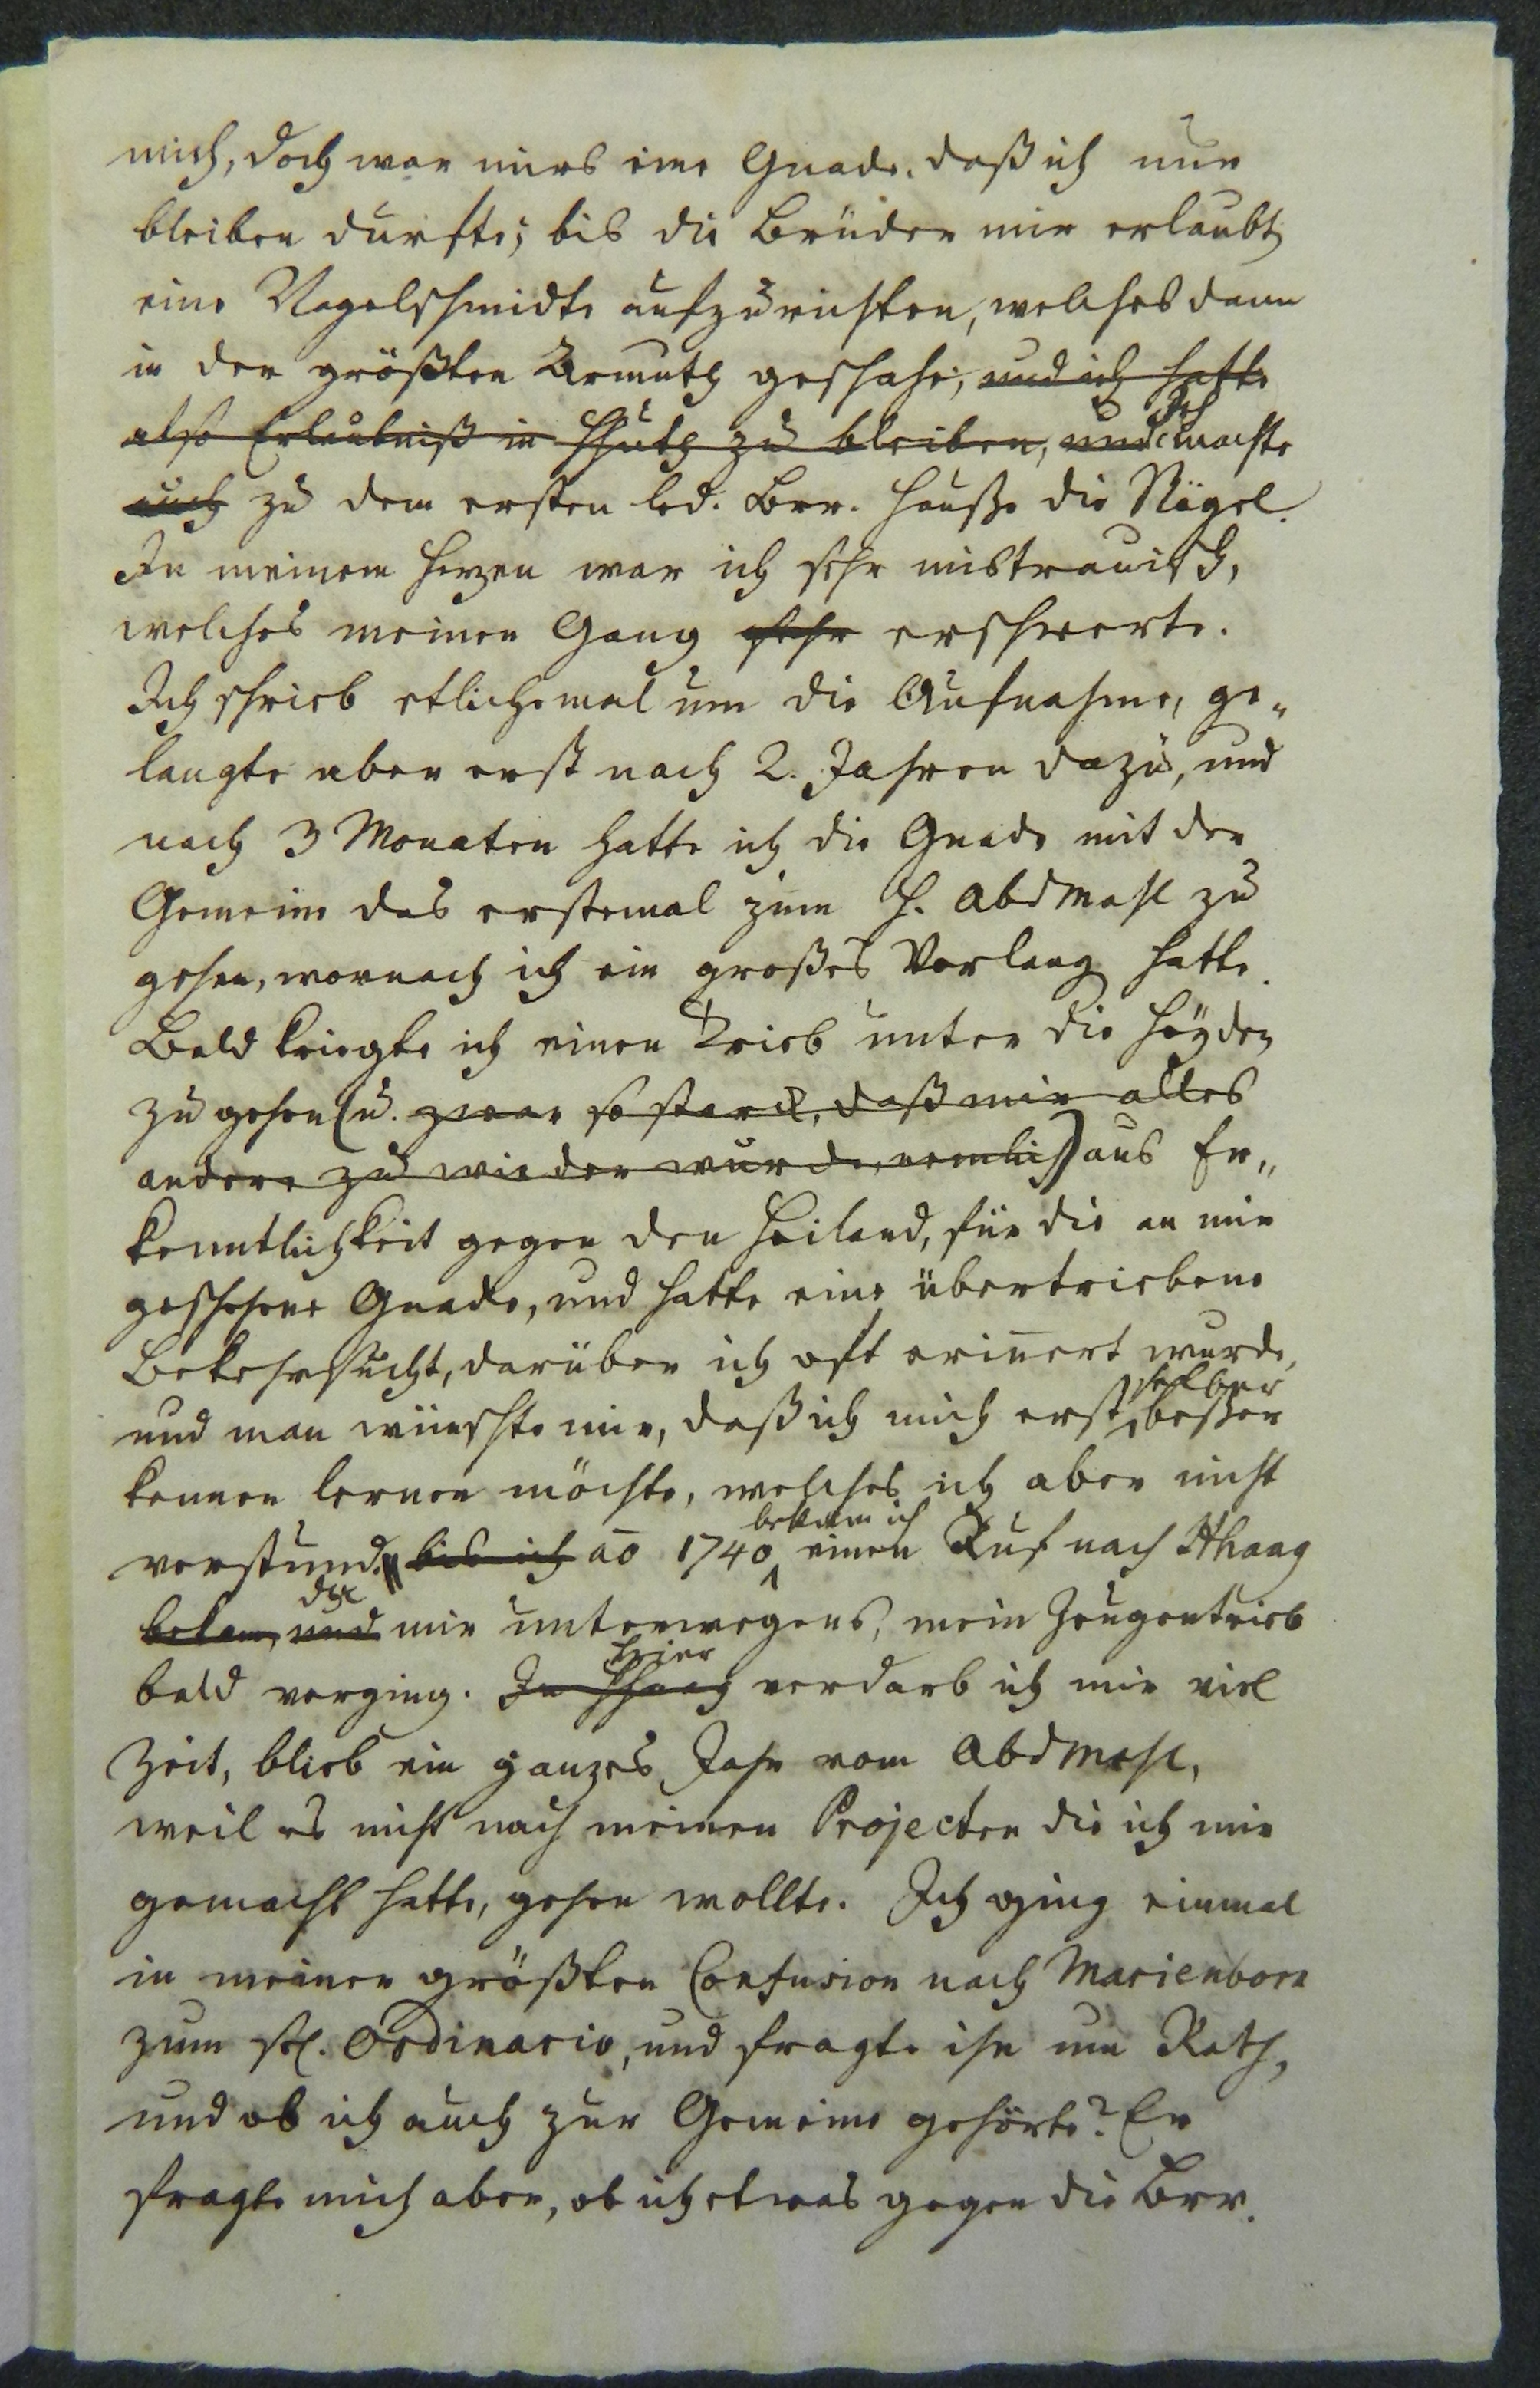 mich, doch war mirs eine Gnade, daß ich nur
bleiben durfte; bis die Brüder mir erlaubt
eine Nagelschmidte aufzurichten, welches dann
in der größten Armuth geschahe, und ich hatte
also Erlaubniß in Hhuth zu bleiben, und Ich machte
auch zu dem ersten led. Brr. Hauße die Nägel.
In meinem Herzen war ich sehr mistrauisch,
welches meinen Gang sehr erschwerte.
Ich schrieb etlichemal um die Aufnahme, ge-
langte aber erst nach 2. Jahren dazu, und
nach 3 Monaten hatte ich die Gnade mit der
Gemeine das erstemal zum H. Abdmahl zu
gehen, wornach ich ein großes Verlang hatte.
Bald kriegte ich einen Trieb unter die Heyden
zu gehen (u. zwar so starck, daß mir alles
andere zu wieder wurde, nemlich) aus Er-
kenntlichkeit gegen den Heiland, für die an mir
geschehene Gnade, und hatte eine übertriebene
Bekehrsucht, darüber ich oft erinnert wurde,
und man wünschte mir, daß ich mich erst selber beßer
kennen lernen möchte, welches ich aber nicht
verstund. bis ich ao 1740 bekam ich einen Ruf nach Hhaag
bekam, und der mir unterwegens, mein Zeugentrieb
bald verging. In Hhaag Hier verdarb ich mir viel
Zeit, blieb ein ganzes Jahr vom Abdmahl,
weil es nicht nach meinen Projecten die ich mir
gemacht hatte, gehen wollte. Ich ging einmal
in meiner größten Confusion nach Marienborn
zum sel. Ordinario, und fragte ihn um Rath,
und ob ich auch zur Gemeine gehörte? Er
fragte mich aber, ob ich etwas gegen die Brr.